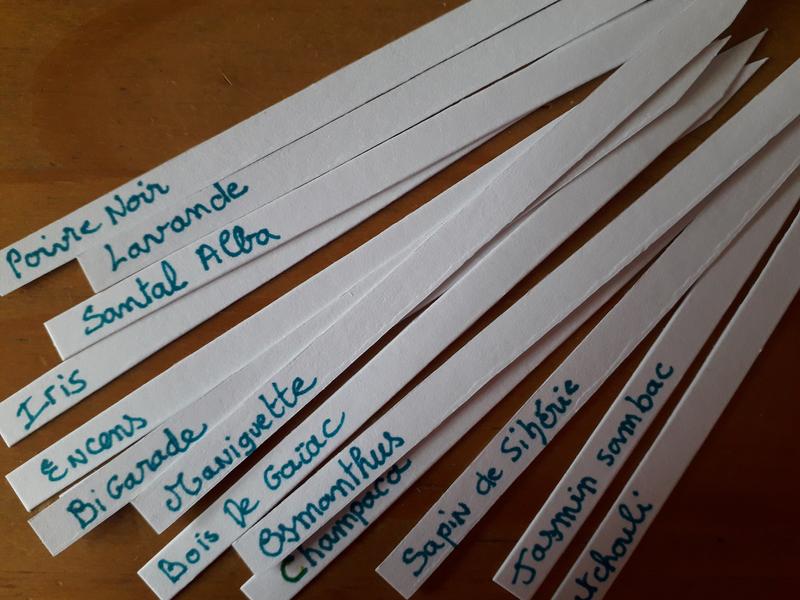 Poivre Noir
Lavande
Santal Alba
Iris
Encens
BiGarade
Maniguette
Bois De Gaïac
Osmanthus
Champaca
Sapin de Sibérie
Jasmin sambac
tchouli